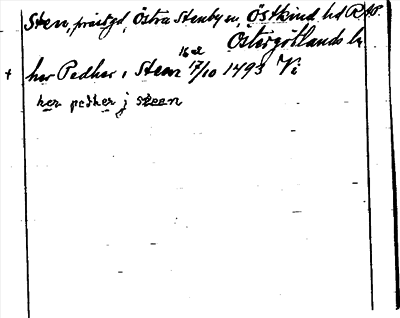 Sten, prästgd, Östra Stenby sn, Östkind hd RAP.
Östergötlands l.
16 el
+ her Pedher i Steen 17/10 1493 Vi
her pedher j steen